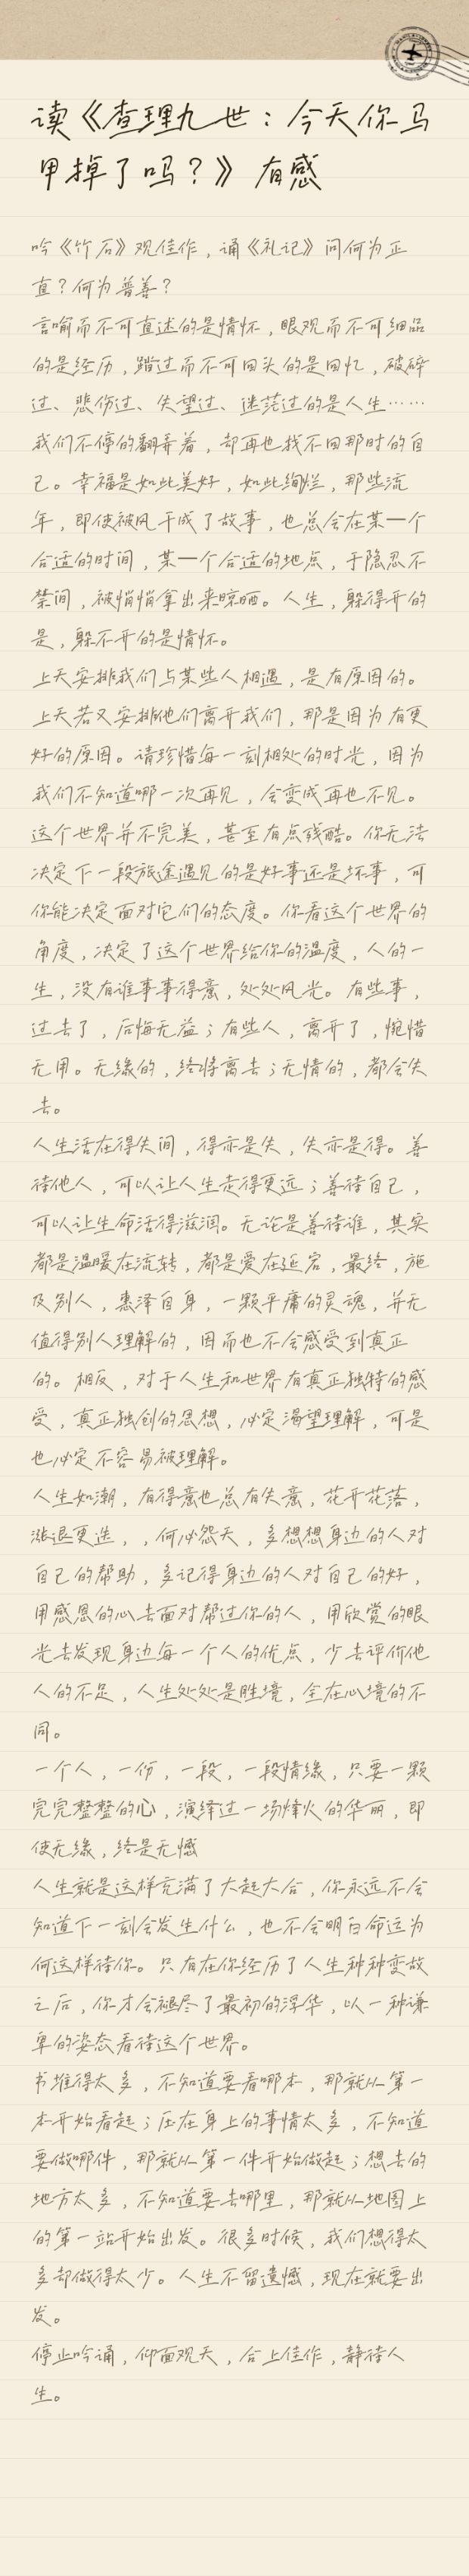 读《查理九世：今天你马
甲掉了吗？》有感
吟《竹石》观佳作，诵《礼记》问何为正
直？何为普善？
言喻而不可直述的是情怀，眼观而不可细品
的是经历，踏过而不可回头的是回忆，破碎
过、悲伤过、失望过、迷茫过的是人生……
我们不停的翻弄着，却再也找不回那时的自
己。幸福是如此美好，如此绚烂，那些流
年，即使被风干成了故事，也总会在某一个
合适的时间，某一个合适的地点，于隐忍不
禁间，被悄悄拿出来晾晒。人生，躲得开的
是，躲不开的是情怀。
上天安排我们与某些人相遇，是有原因的。
上天若又安排他们离开我们，那是因为有更
好的原因。请珍惜每一刻相处的时光，因为
我们不知道哪一次再见，会变成再也不见。
这个世界并不完美，甚至有点残酷。你无法
决定下一段旅途遇见的是好事还是坏事，可
你能决定面对它们的态度。你看这个世界的
角度，决定了这个世界给你的温度，人的一
生，没有谁事事得意，处处风光。有些事，
过去了，后悔无益；有些人，离开了，惋惜
无用。无缘的，终将离去；无情的，都会失
去。
人生活在得失间，得亦是失，失亦是得。善
待他人，可以让人生走得更远；善待自己，
可以让生命活得滋润。无论是善待谁，其实
都是温暖在流转，都是爱在延宕，最终，施
及别人，惠泽自身，一颗平庸的灵魂，并无
值得别人理解的，因而也不会感受到真正
的。相反，对于人生和世界有真正独特的感
受，真正独创的思想，必定渴望理解，可是
也必定不容易被理解。
人生如潮，有得意也总有失意，花开花落，
涨退更迭，，何必怨天，多想想身边的人对
自己的帮助，多记得身边的人对自己的好，
用感恩的心去面对帮过你的人，用欣赏的眼
光去发现身边每一个人的优点，少去评价他
人的不足，人生处处是胜境，全在心境的不
同。
一个人，一份，一段，一段情缘，只要一颗
完完整整的心，演绎过一场烽火的华丽，即
使无缘，终是无憾
人生就是这样充满了大起大合，你永远不会
知道下一刻会发生什么，也不会明白命运为
何这样待你。只有在你经历了人生种种变故
之后，你才会褪尽了最初的浮华，以一种谦
卑的姿态看待这个世界。
书堆得太多，不知道要看哪本，那就从第一
本开始看起；压在身上的事情太多，不知道
要做哪件，那就从第一件开始做起；想去的
地方太多，不知道要去哪里，那就从地图上
的第一站开始出发。很多时候，我们想得太
多却做得太少。人生不留遗憾，现在就要出
发。
停止吟诵，仰面观天，合上佳作，静待人
生。